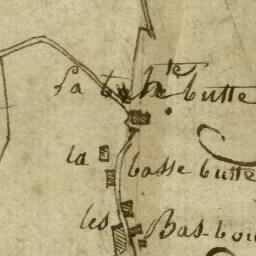 la hte butte
la basse butte
les Bas bou